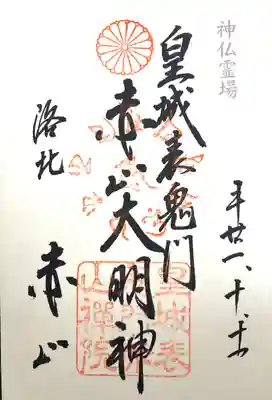 神仏霊場
平廿一、十、
皇城表鬼門
赤山大明神
洛北
赤山
皇城表
山禅院